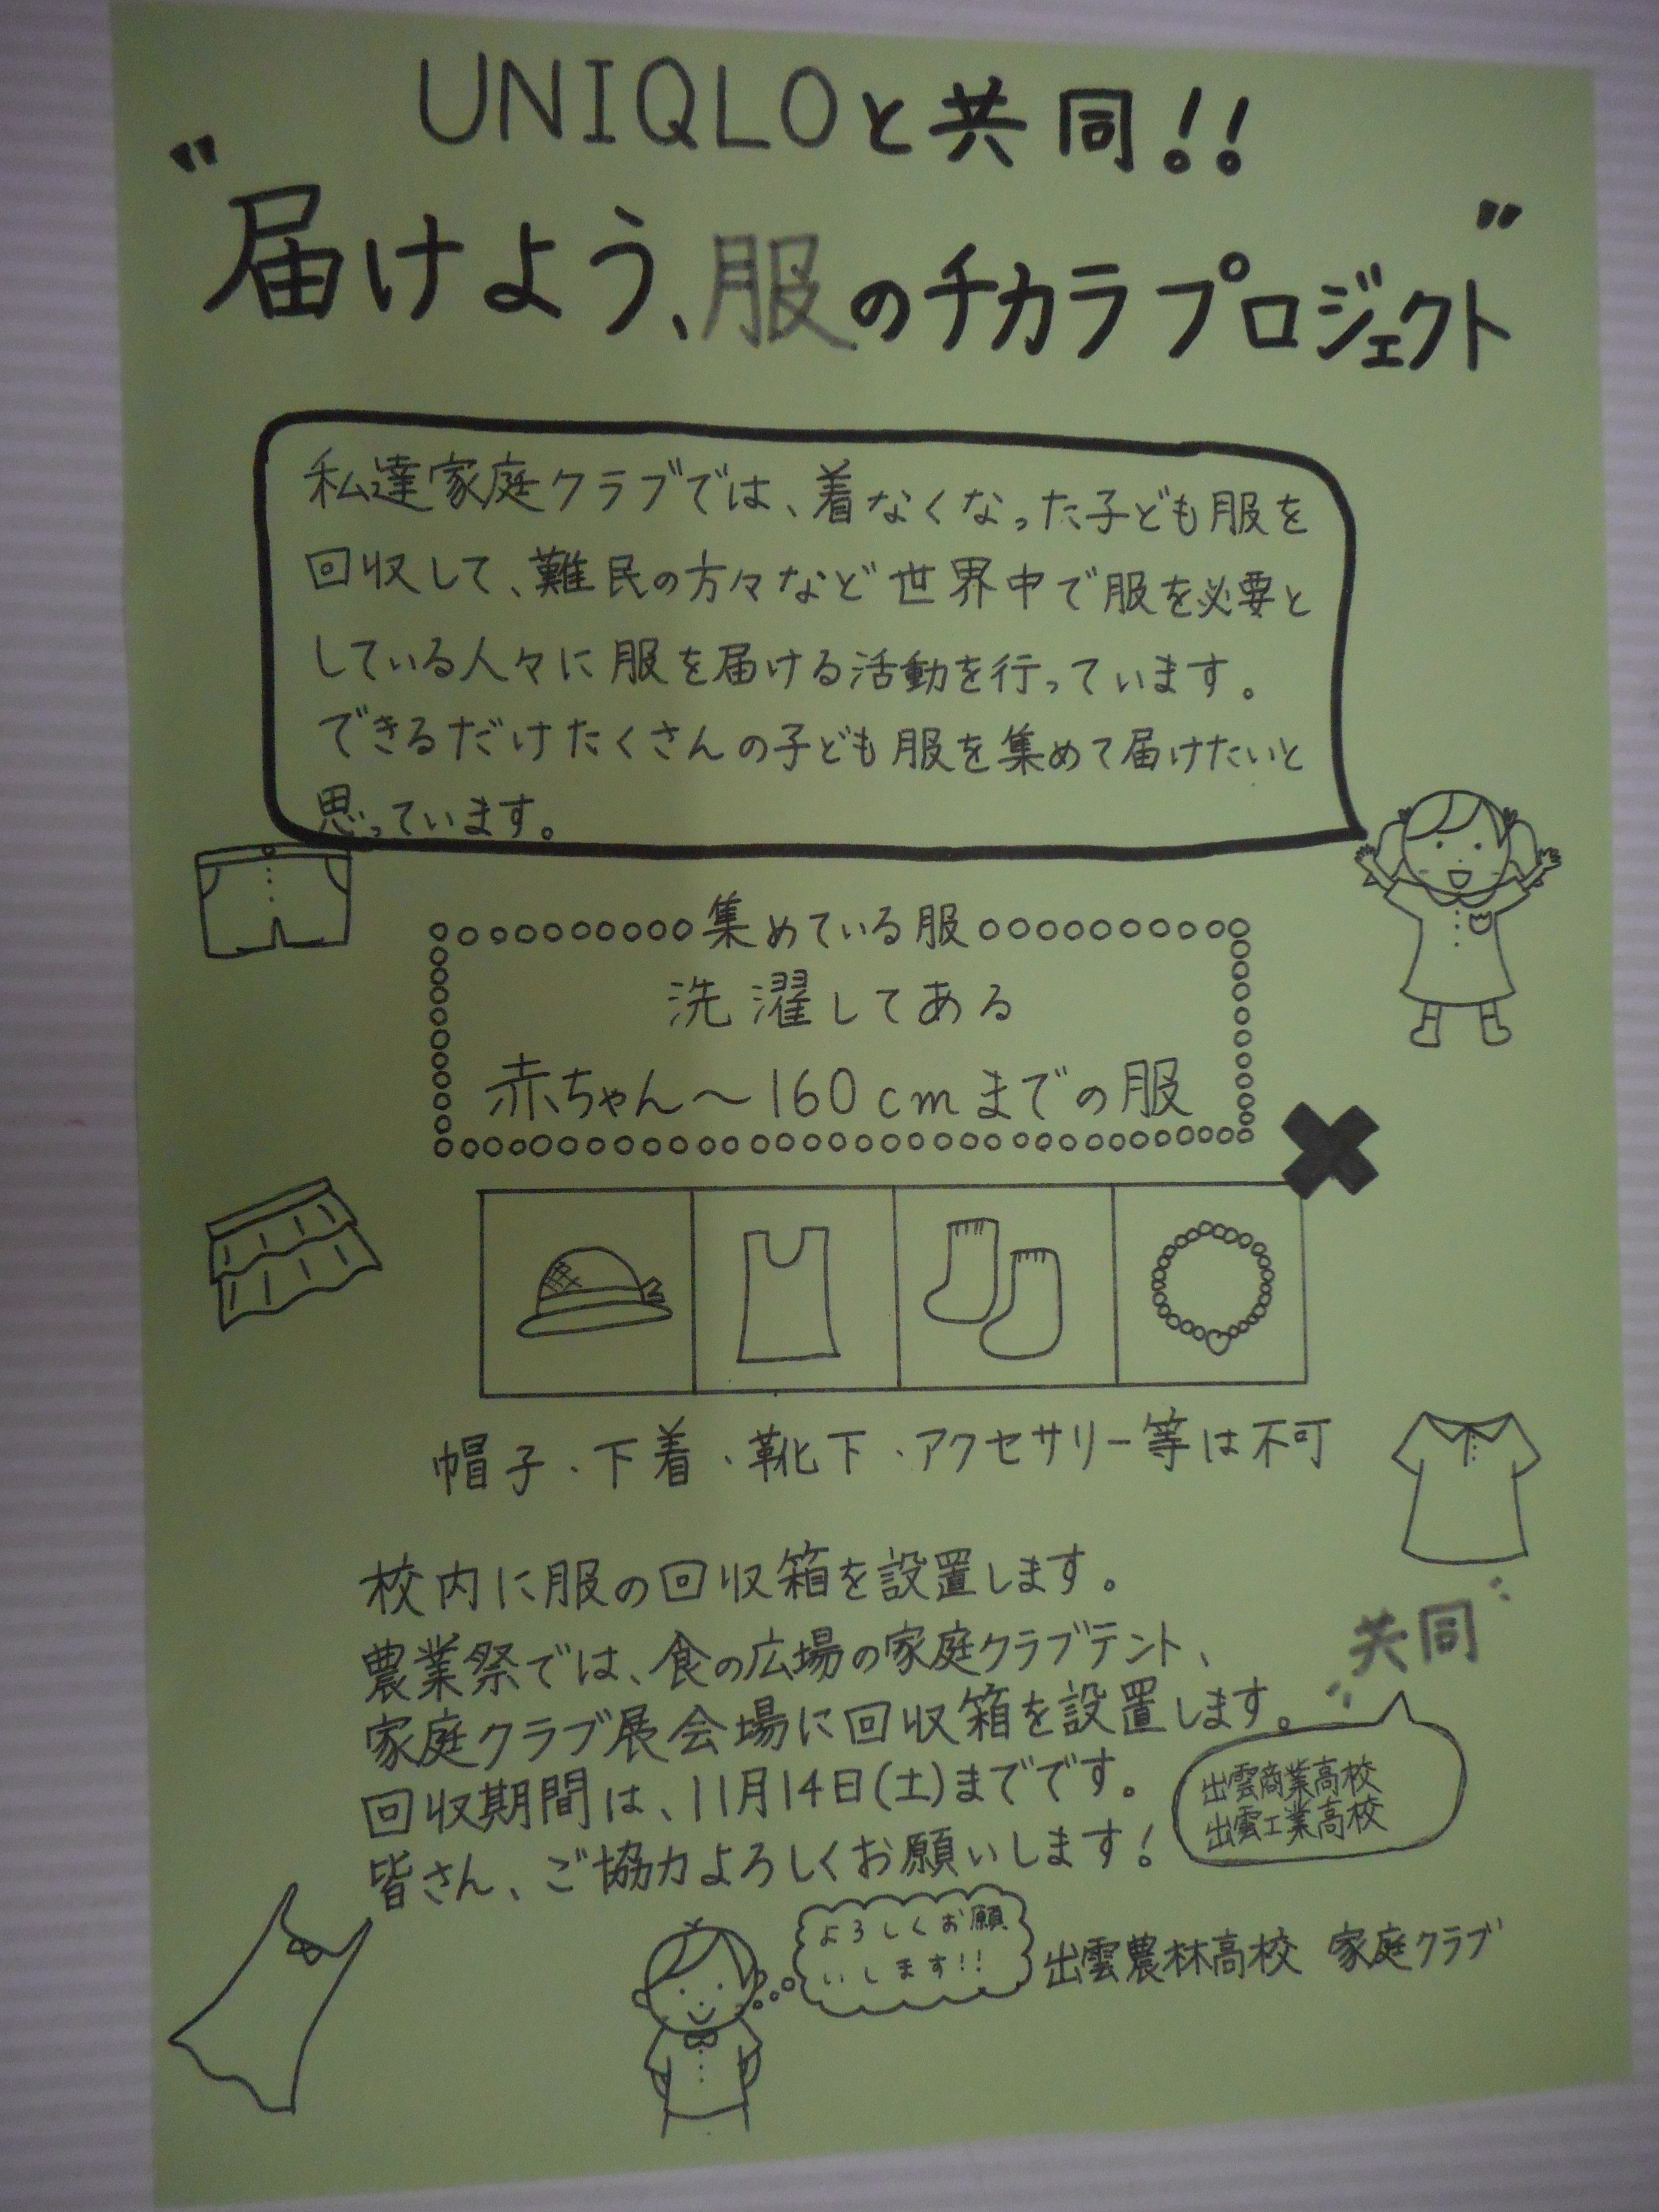 UNIQLOと共同!!
"届けよう、服のチカラプロジェクト"
私達家庭クラブでは、着なくなった子ども服を
回収して、難民の方々など世界中で服を必要と
している人々に服を届ける活動を行っています。
できるだけたくさんの子ども服を集めて届けたいと
思っています。
集めている服
洗濯してある
赤ちゃん〜160cmまでの服
帽子・下着・靴下・アクセサリー等は不可
校内に服の回収箱を設置します。
農業祭では、食の広場の家庭クラブテント、
家庭クラブ展会場に回収箱を設置します。
回収期間は、11月14日(土)までです。
皆さん、ご協力よろしくお願いします!
共同
出雲商業高校
出雲工業高校
よろしくお願
いします!!
出雲農林高校 家庭クラブ